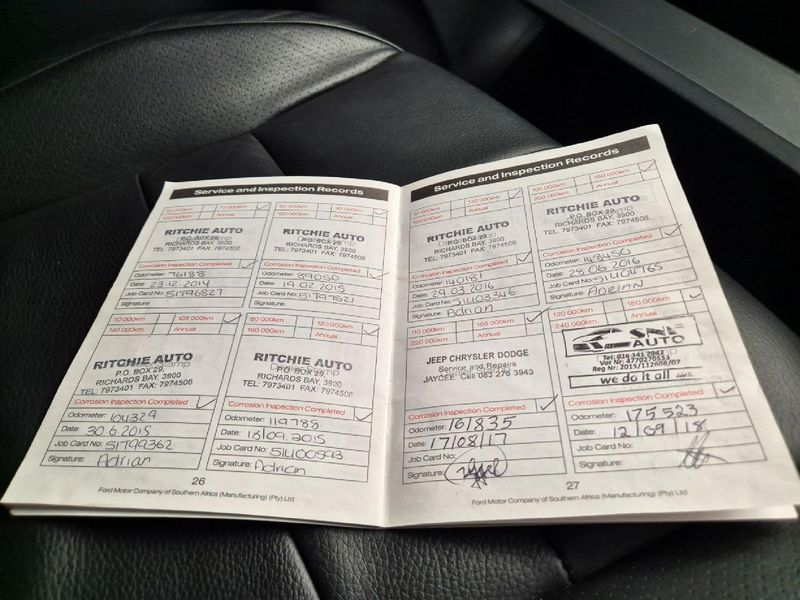 Service and Inspection Records
75 000km
90 000km
Annual
Annual
RITCHIE AUTO
P.O. BOX 29,
RICHARDS BAY, 3900
TEL: 7973401 FAX: 7974506
Corrosion Inspection Completed
Odometer: 76188
Date: 23.12.2014
Job Card No: 51796827
Signature:
RITCHIE AUTO
P.O. BOX 29,
RICHARDS BAY, 3900
TEL: 7973401 FAX: 7974506
Corrosion Inspection Completed
Odometer: 89050
Date: 19.02.2015
Job Card No: 51797821
Signature:
105 000km
Annual
RITCHIE AUTO
P.O. BOX 29,
RICHARDS BAY, 3900
TEL: 7973401 FAX: 7974506
Corrosion Inspection Completed
Odometer: 104329
Date: 30.6.2015
Job Card No: 51799362
Signature: Adrian
120 000km
160 000km
Annual
RITCHIE AUTO
P.O. BOX 29,
RICHARDS BAY, 3900
TEL: 7973401 FAX: 7974506
Corrosion Inspection Completed
Odometer: 119788
Date: 18/09.2015
Job Card No: 51400593
Signature: Adrian
26
Ford Motor Company of Southern Africa (Manufacturing) (Pty) Ltd
Service and Inspection Records
90 000km
135 000km
Annual
RITCHIE AUTO
P.O. BOX 29,
RICHARDS BAY, 3900
TEL: 7973401 FAX: 7974506
Corrosion Inspection Completed
Odometer: 140181
Date: 29.03.2016
Job Card No: 51403346
Signature: Adrian
100 000km
150 000km
200 000km
Annual
RITCHIE AUTO
P.O. BOX 29,
RICHARDS BAY, 3900
TEL: 7973401 FAX: 7974506
Corrosion Inspection Completed
Odometer: 148450
Date: 28.06.2016
Job Card No: 51404765
Signature: ADRIAN
110 000km
165 000km
220 000km
Annual
JEEP CHRYSLER DODGE
Service and Repairs
JAYCEE: Cell 083 276 3943
Corrosion Inspection Completed
Odometer: 161835
Date: 17/08/17
Job Card No:
Signature:
120 000km
180 000km
240 000km
Annual
SNL
AUTO
Tel: 016 341 2947
Vat Nr: 4770270558
Reg Nr: 2015/112608/07
we do it all
Corrosion Inspection Completed
Odometer: 175523
Date: 12/09/18
Job Card No:
Signature:
27
Ford Motor Company of Southern Africa (Manufacturing) (Pty) Ltd